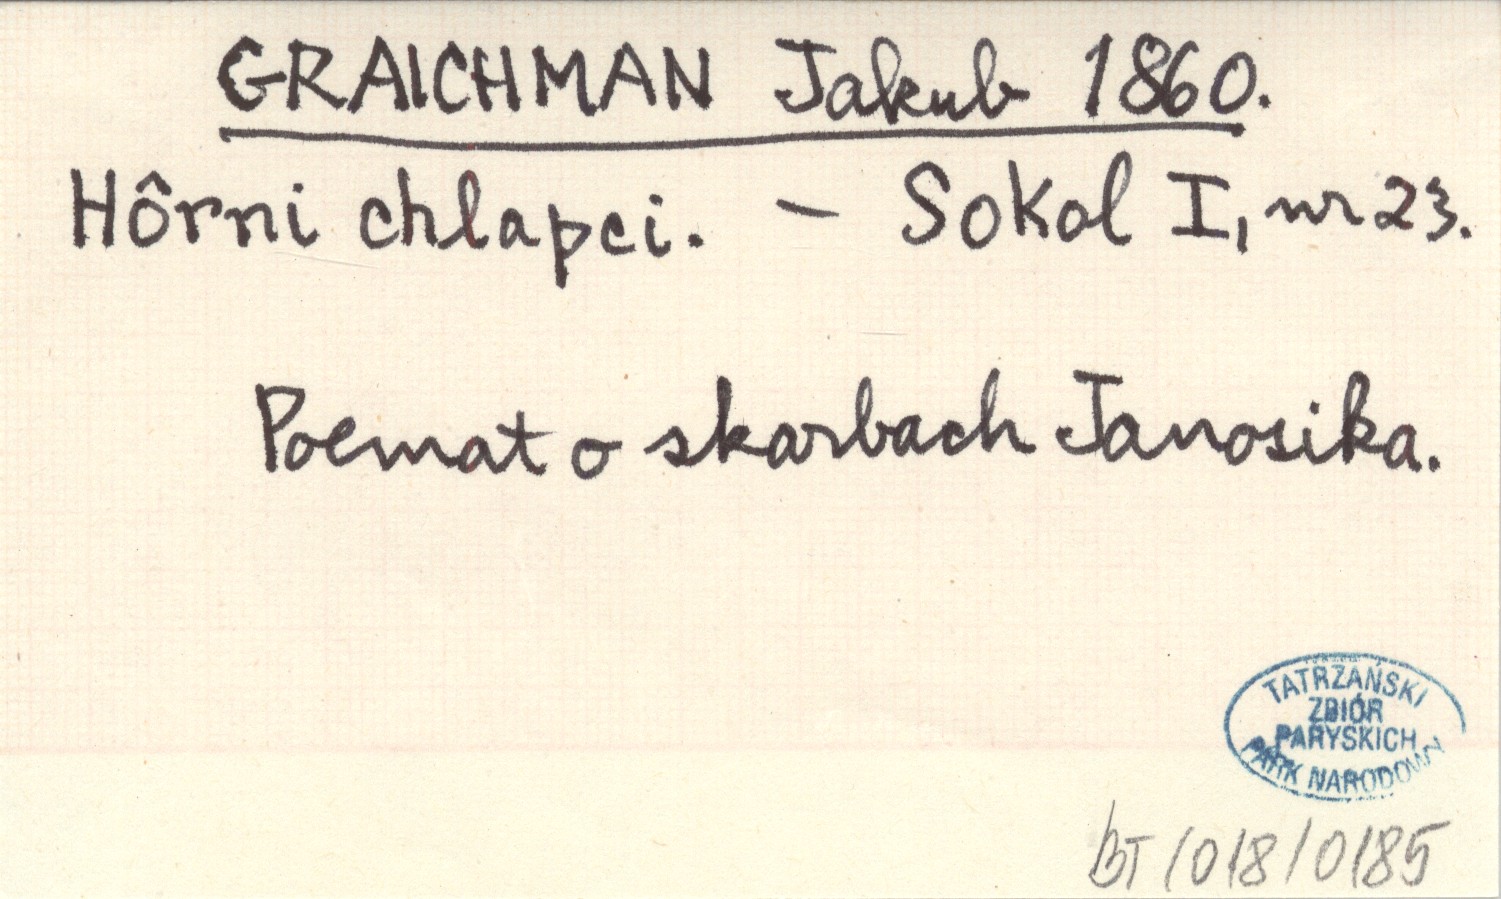 GRAICHMAN Jakub 1860.
Hôrni chlapci. – Sokol I, nr 23.
Poemat o skarbach Janosika.
TATRZAŃSKI
ZBIÓR
PARYSKICH
PARK NARODOWY
BT/018/0185